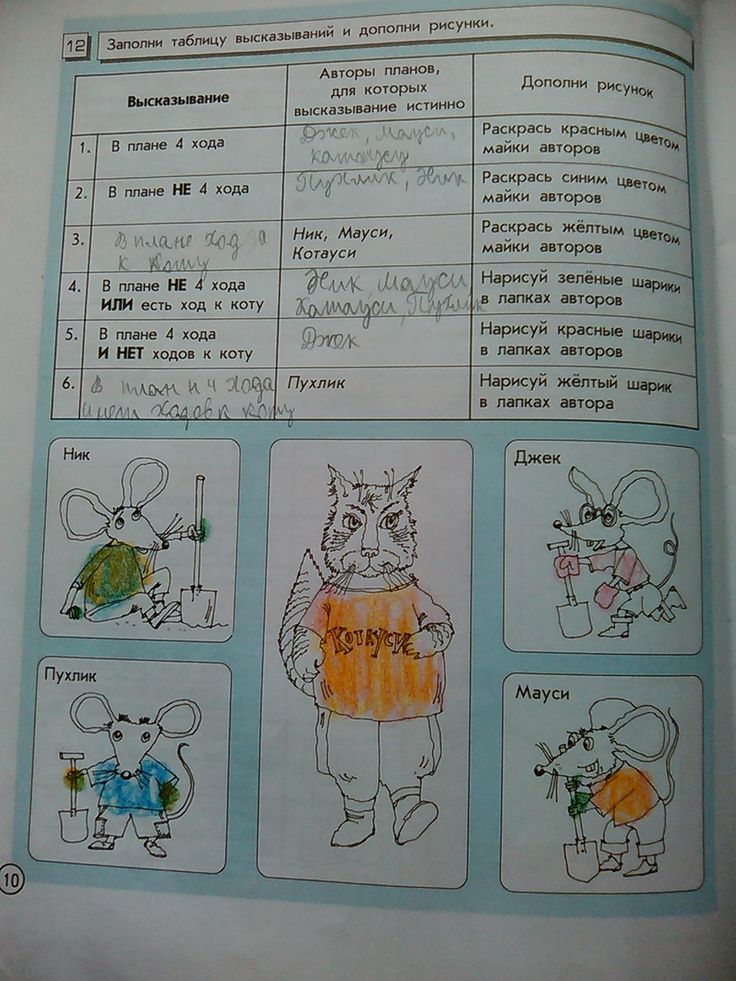 12 Заполни таблицу высказываний и дополни рисунки.
Высказывание
Авторы планов,
для которых
высказывание истинно
Дополни рисунок
1. В плане 4 хода
Джек, Мауси,
катаусу
Раскрась красным цветом
майки авторов
2. В плане НЕ 4 хода
Пухлик, Ник
Раскрась синим цветом
майки авторов
3. В плане ход
к коту
Ник, Мауси,
Котауси
Раскрась жёлтым цветом
майки авторов
4. В плане НЕ 4 хода
ИЛИ есть ход к коту
Ник, Мауси
Катауси, Пухлик
Нарисуй зелёные шарики
в лапках авторов
5. В плане 4 хода
И НЕТ ходов к коту
Джек
Нарисуй красные шарики
в лапках авторов
6. В план н 4 хода
и нет ходов к коту
Пухлик
Нарисуй жёлтый шарик
в лапках автора
Ник
Джек
Котауси
Пухлик
Мауси
10